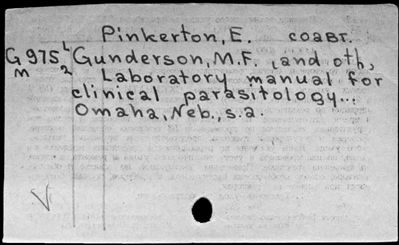 Pinkerton, E. соавт.
G975 L2 Gunderson, M.F. (and oth,
M Laboratory manual for
clinical parasitology...
Omaha, Neb., s.a.
V